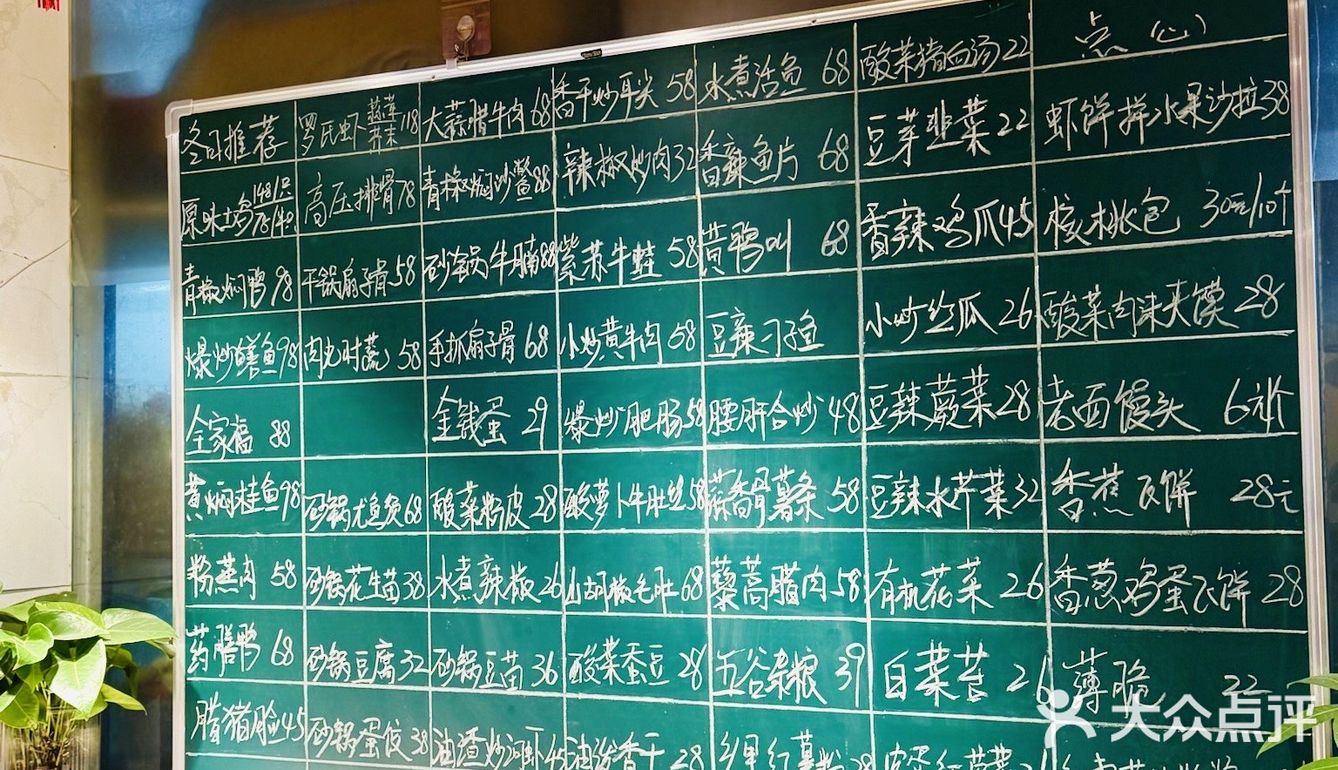 冬日推荐
罗氏虾 蒜蓉 芥末 118
大蒜腊牛肉 68
香干炒耳尖 58
水煮活鱼 68
酸菜猪血汤 22
点(心)
原味土鸡 148/只 78/半只
高压排骨 78
青椒焖沙鳖 88
辣椒炒肉 32
香辣鱼片 68
豆芽韭菜 22
虾饼拌水果沙拉 38
青椒焖鸭 98
干锅扇子骨 58
砂锅牛腩 88
紫苏牛蛙 58
黄鸭叫 68
香辣鸡爪 45
核桃包 30元/10个
爆炒鳝鱼 98
肉丸时蔬 58
手抓扇子骨 68
小炒黄牛肉 58
豆辣刁子鱼
小炒丝瓜 26
酸菜肉沫夹馍 28
全家福 88
金钱蛋 29
爆炒肥肠 58
腰肝合炒 48
豆辣蕨菜 28
老面馒头 6元/个
黄焖桂鱼 98
砂锅尤鱼炎 68
酸菜粉皮 28
酸萝卜牛肚丝 58
蒜香骨薯条 58
豆辣水芹菜 32
香蕉飞饼 28元
粉蒸肉 58
砂锅花生苗 38
水煮辣椒 26
山胡椒毛肚 68
藜蒿腊肉 58
有机花菜 26
香葱鸡蛋飞饼 28
药膳鸭 68
砂锅豆腐 32
砂锅豆苗 36
酸菜蚕豆 28
五谷杂粮 39
白菜苔 26
薄脆 22
腊猪脸 45
砂锅蛋饺 38
油渣炒河虾 45
香干 28
乡里红薯粉 28
大众点评